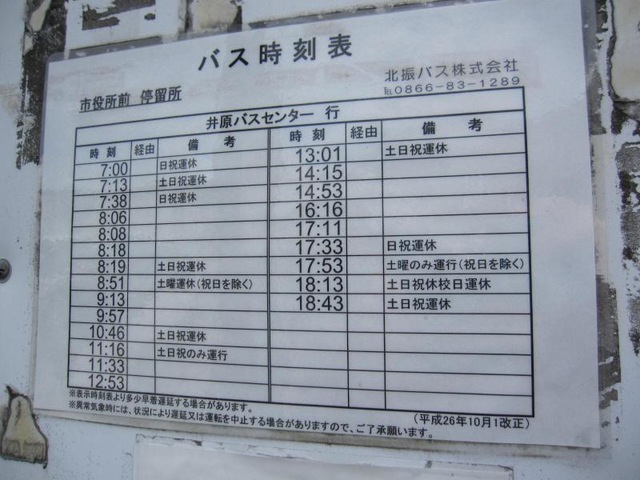 バス時刻表
北振バス株式会社
市役所前 停留所
℡0866-83-1289
井原バスセンター 行
時刻 経由 備考 時刻 経由 備考
7:00 日祝運休 13:01 土日祝運休
7:13 土日祝運休 14:15
7:38 日祝運休 14:53
8:06 16:16
8:08 17:11
8:18 17:33 日祝運休
8:19 土日祝運休 17:53 土曜のみ運行(祝日を除く)
8:51 土曜運休(祝日を除く) 18:13 土日祝休校日運休
9:13 18:43 土日祝運休
9:57
10:46 土日祝運休
11:16 土日祝のみ運行
11:33
12:53
※表示時刻表より多少早着遅延する場合があります。
※異常気象時には、状況により遅延又は運転を中止する場合がありますので、ご了承願います。
(平成26年10月1改正)